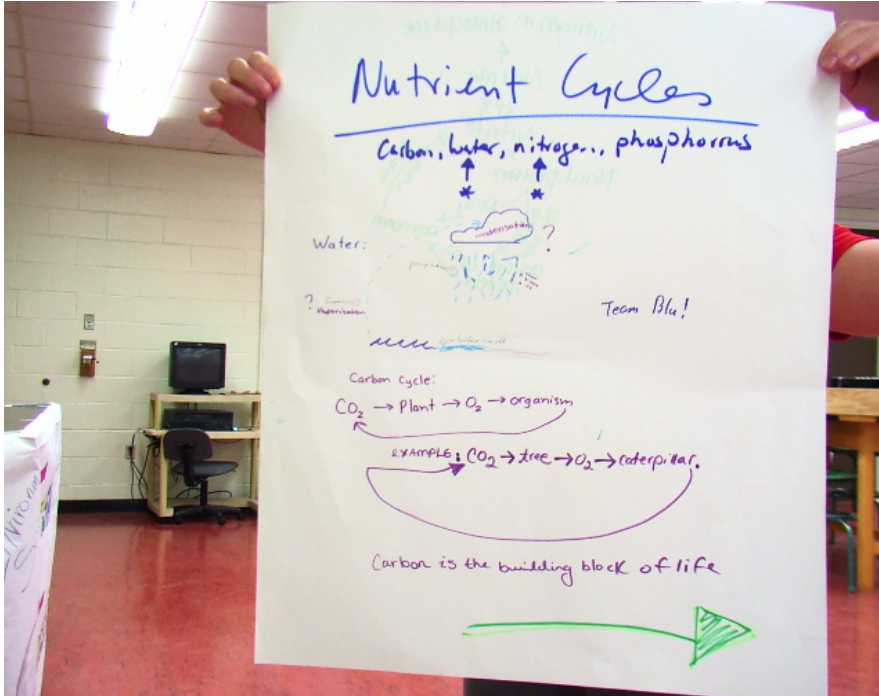 Nutrient Cycles
Carbon, water, nitrogen, phosphorous
* *
Water:
condensation ?
?
Vaporization
Team Blu!
Carbon Cycle:
CO₂ → Plant → O₂ → organism
EXAMPLE: CO₂ → tree → O₂ → caterpillar.
Carbon is the building block of life